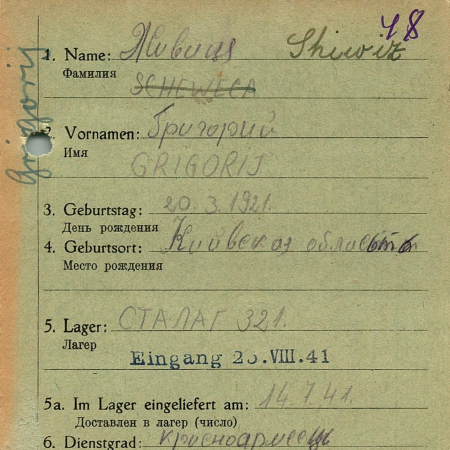 48
1. Name: Живиця Shiwiz
Фамилия SCHEWEZA
2. Vornamen: Григорий
Имя GRIGORIJ
3. Geburtstag: 20.3.1921.
День рождения
4. Geburtsort: Киівская область
Место рождения
5. Lager: СТАЛАГ 321.
Лагер
Eingang 25.VIII.41
5a. Im Lager eingeliefert am: 14.7.41.
Доставлен в лагер (число)
6. Dienstgrad: красноармеець
Grigorij